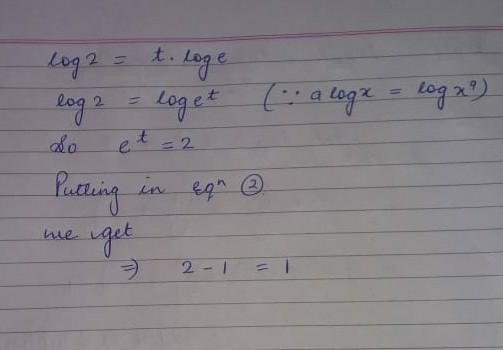 log 2 = t. log e
log 2 = log e^t (∵ a log x = log x^a)
So e^t = 2
Putting in eqⁿ ②
we get
⇒ 2 - 1 = 1